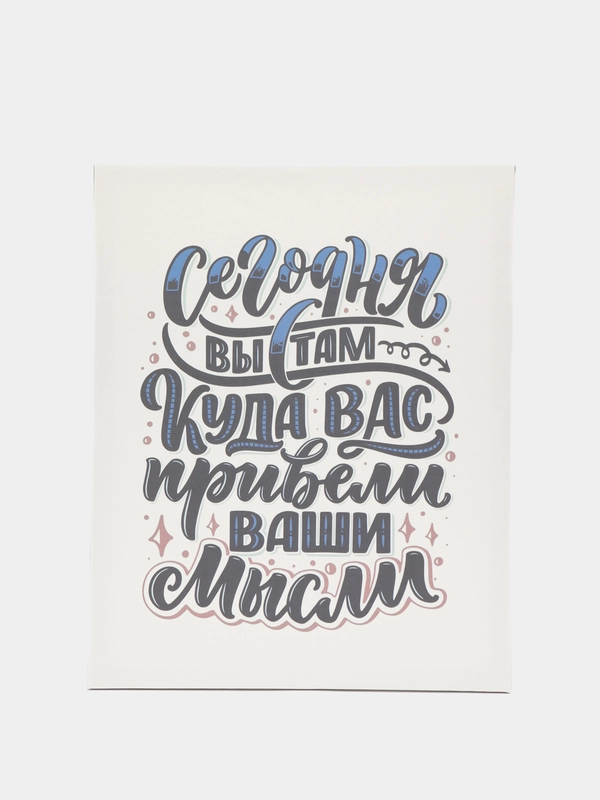 Сегодня
вы там
куда вас
привели
ваши
мысли